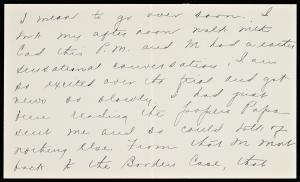 I mean to go over soon. I
took my after noon walk with
Cad this P.M. and M had a rather
sensational conversation; I am
so excited over the trial and get
news so slowly. I had just
been reading the papers Papa
sent me and so could talk of
nothing else. From that M went
back to the Borden Case, that